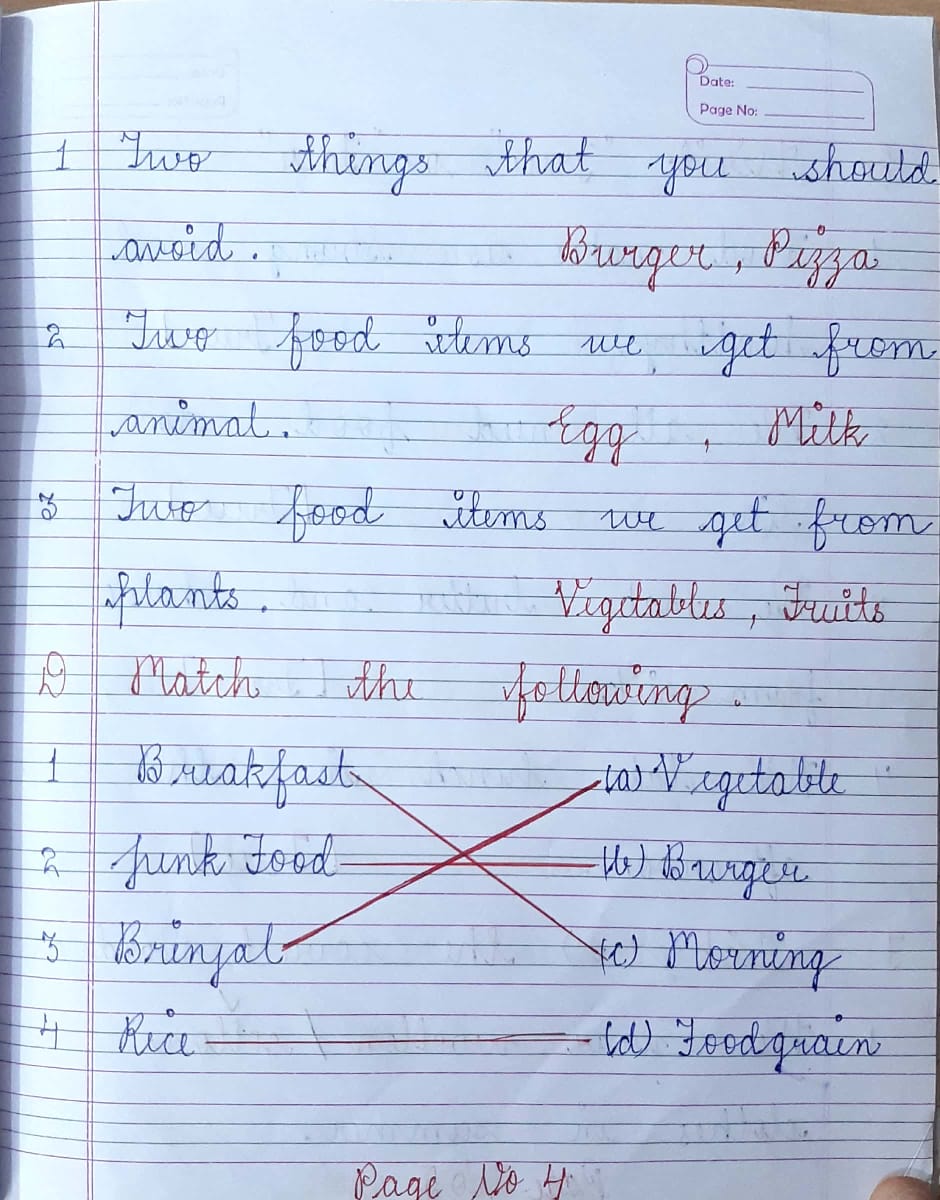 Date:
Page No:
1 Two things that you should
avoid. Burger, Pizza
2 Two food items we get from
animal. Egg, Milk
3 Two food items we get from
plants. Vegetables, Fruits
D Match the following.
1 Breakfast (a) Vegetable
2 Junk Food (b) Burger
3 Brinjal (c) Morning
4 Rice (d) Foodgrain
Page No 4